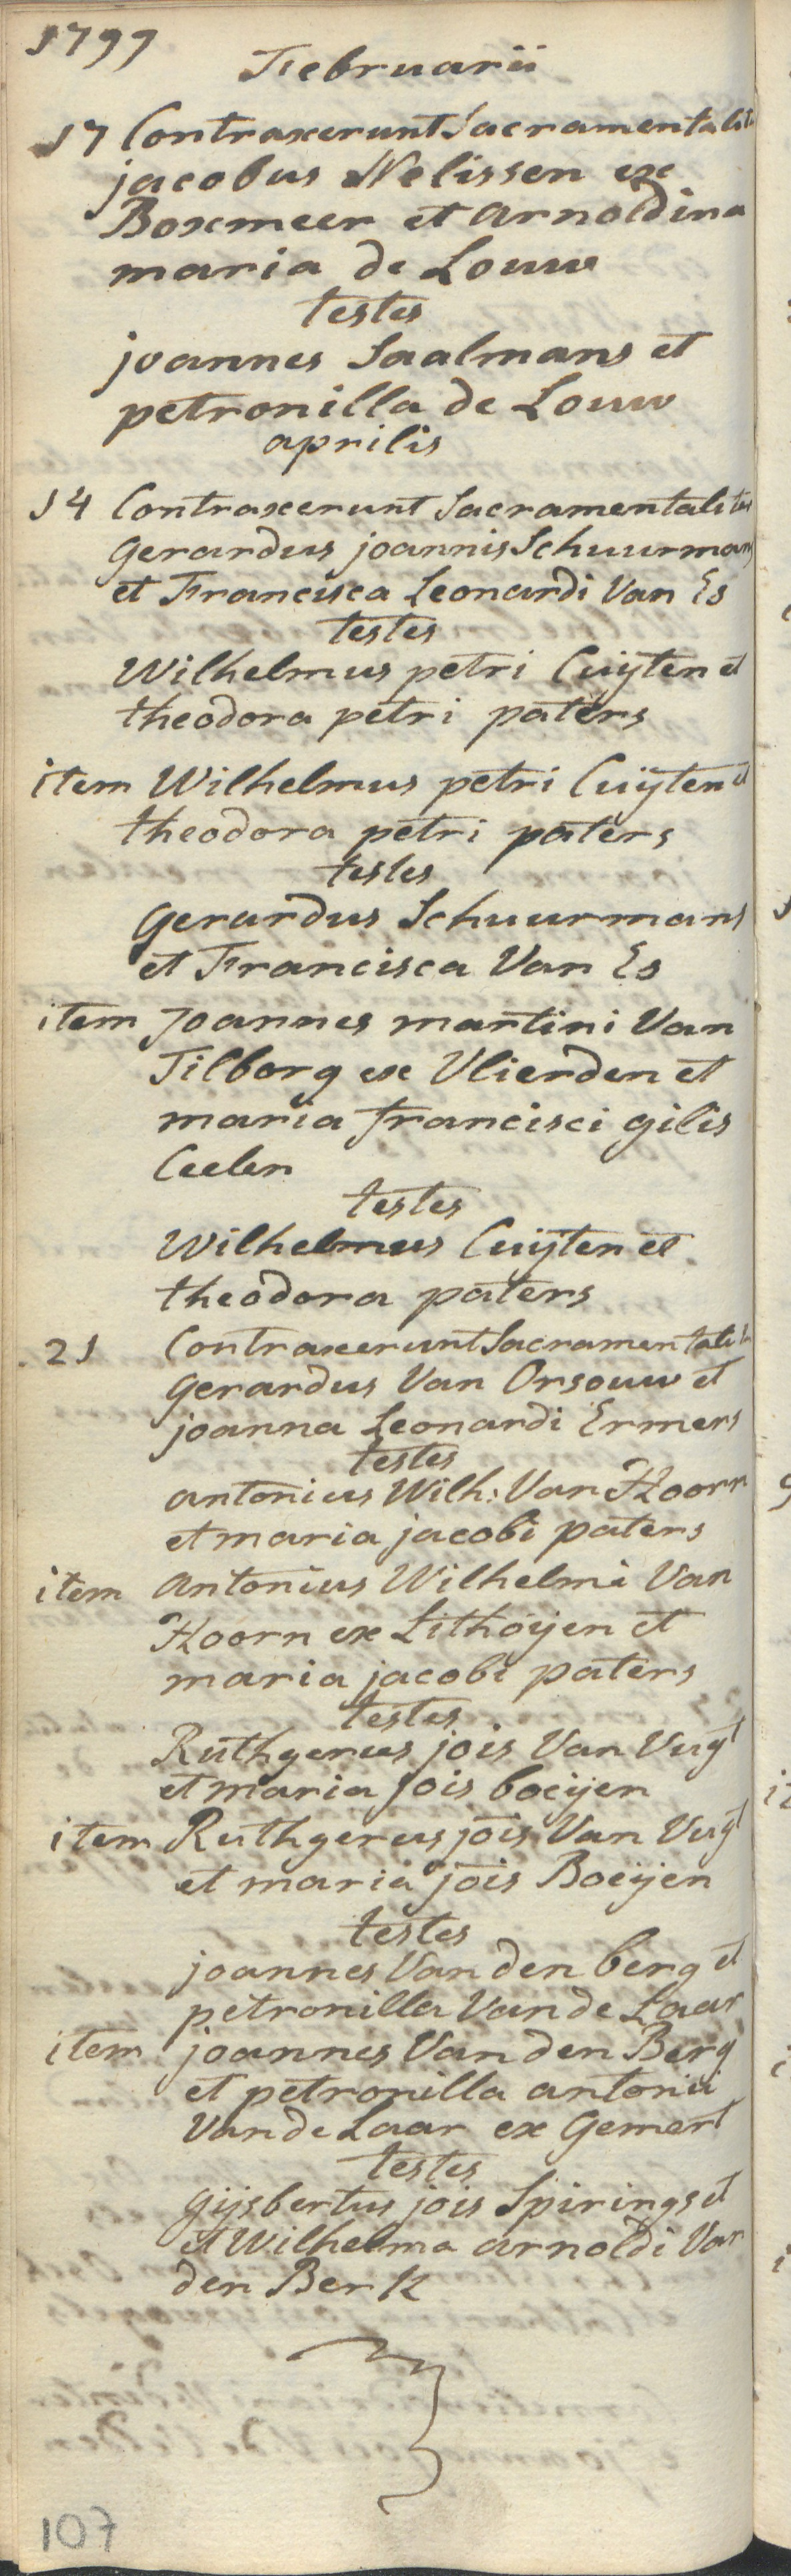 1799
Februarii
17 Contraxerunt Sacramentalit
jacobus Nelissen ex
Boxmeer et arnoldina
maria de Louw
testes
joannes Saalmans et
petronilla de Louw
aprilis
14 Contraxerunt Sacramentalit
Gerardus joannis Schuurmans
et Francisca Leonardi Van Es
testes
Wilhelmus petri Cuijten et
theodora petri paters
item Wilhelmus petri Cuijten et
theodora petri paters
testes
Gerardus Schuurmans
et Francisca Van Es
item Joannes martini Van
Tilborg ex Vlierden et
maria francisci gilis
Ceelen
testes
Wilhelmus Cuijten et
theodora paters
21 Contraxerunt Sacramentalit
Gerardus Van Orsouw et
joanna Leonardi Ermers
testes
antonius Wilh: Van Hoorn
et maria jacobi paters
item antonius Wilhelmi Van
Hoorn ex Lithoijen et
maria jacobi paters
testes
Ruthgerus jois Van Vugt
et maria jois boeijen
item Ruthgerus jois Van Vugt
et maria jois Boeijen
testes
joannes Van den berg et
petronilla Van de Laar
item joannes Van den Berg
et petronilla antonii
Van de Laar ex Gemert
testes
gijsbertus jois Spirings et
Wilhelma arnoldi Van
den Berk
107